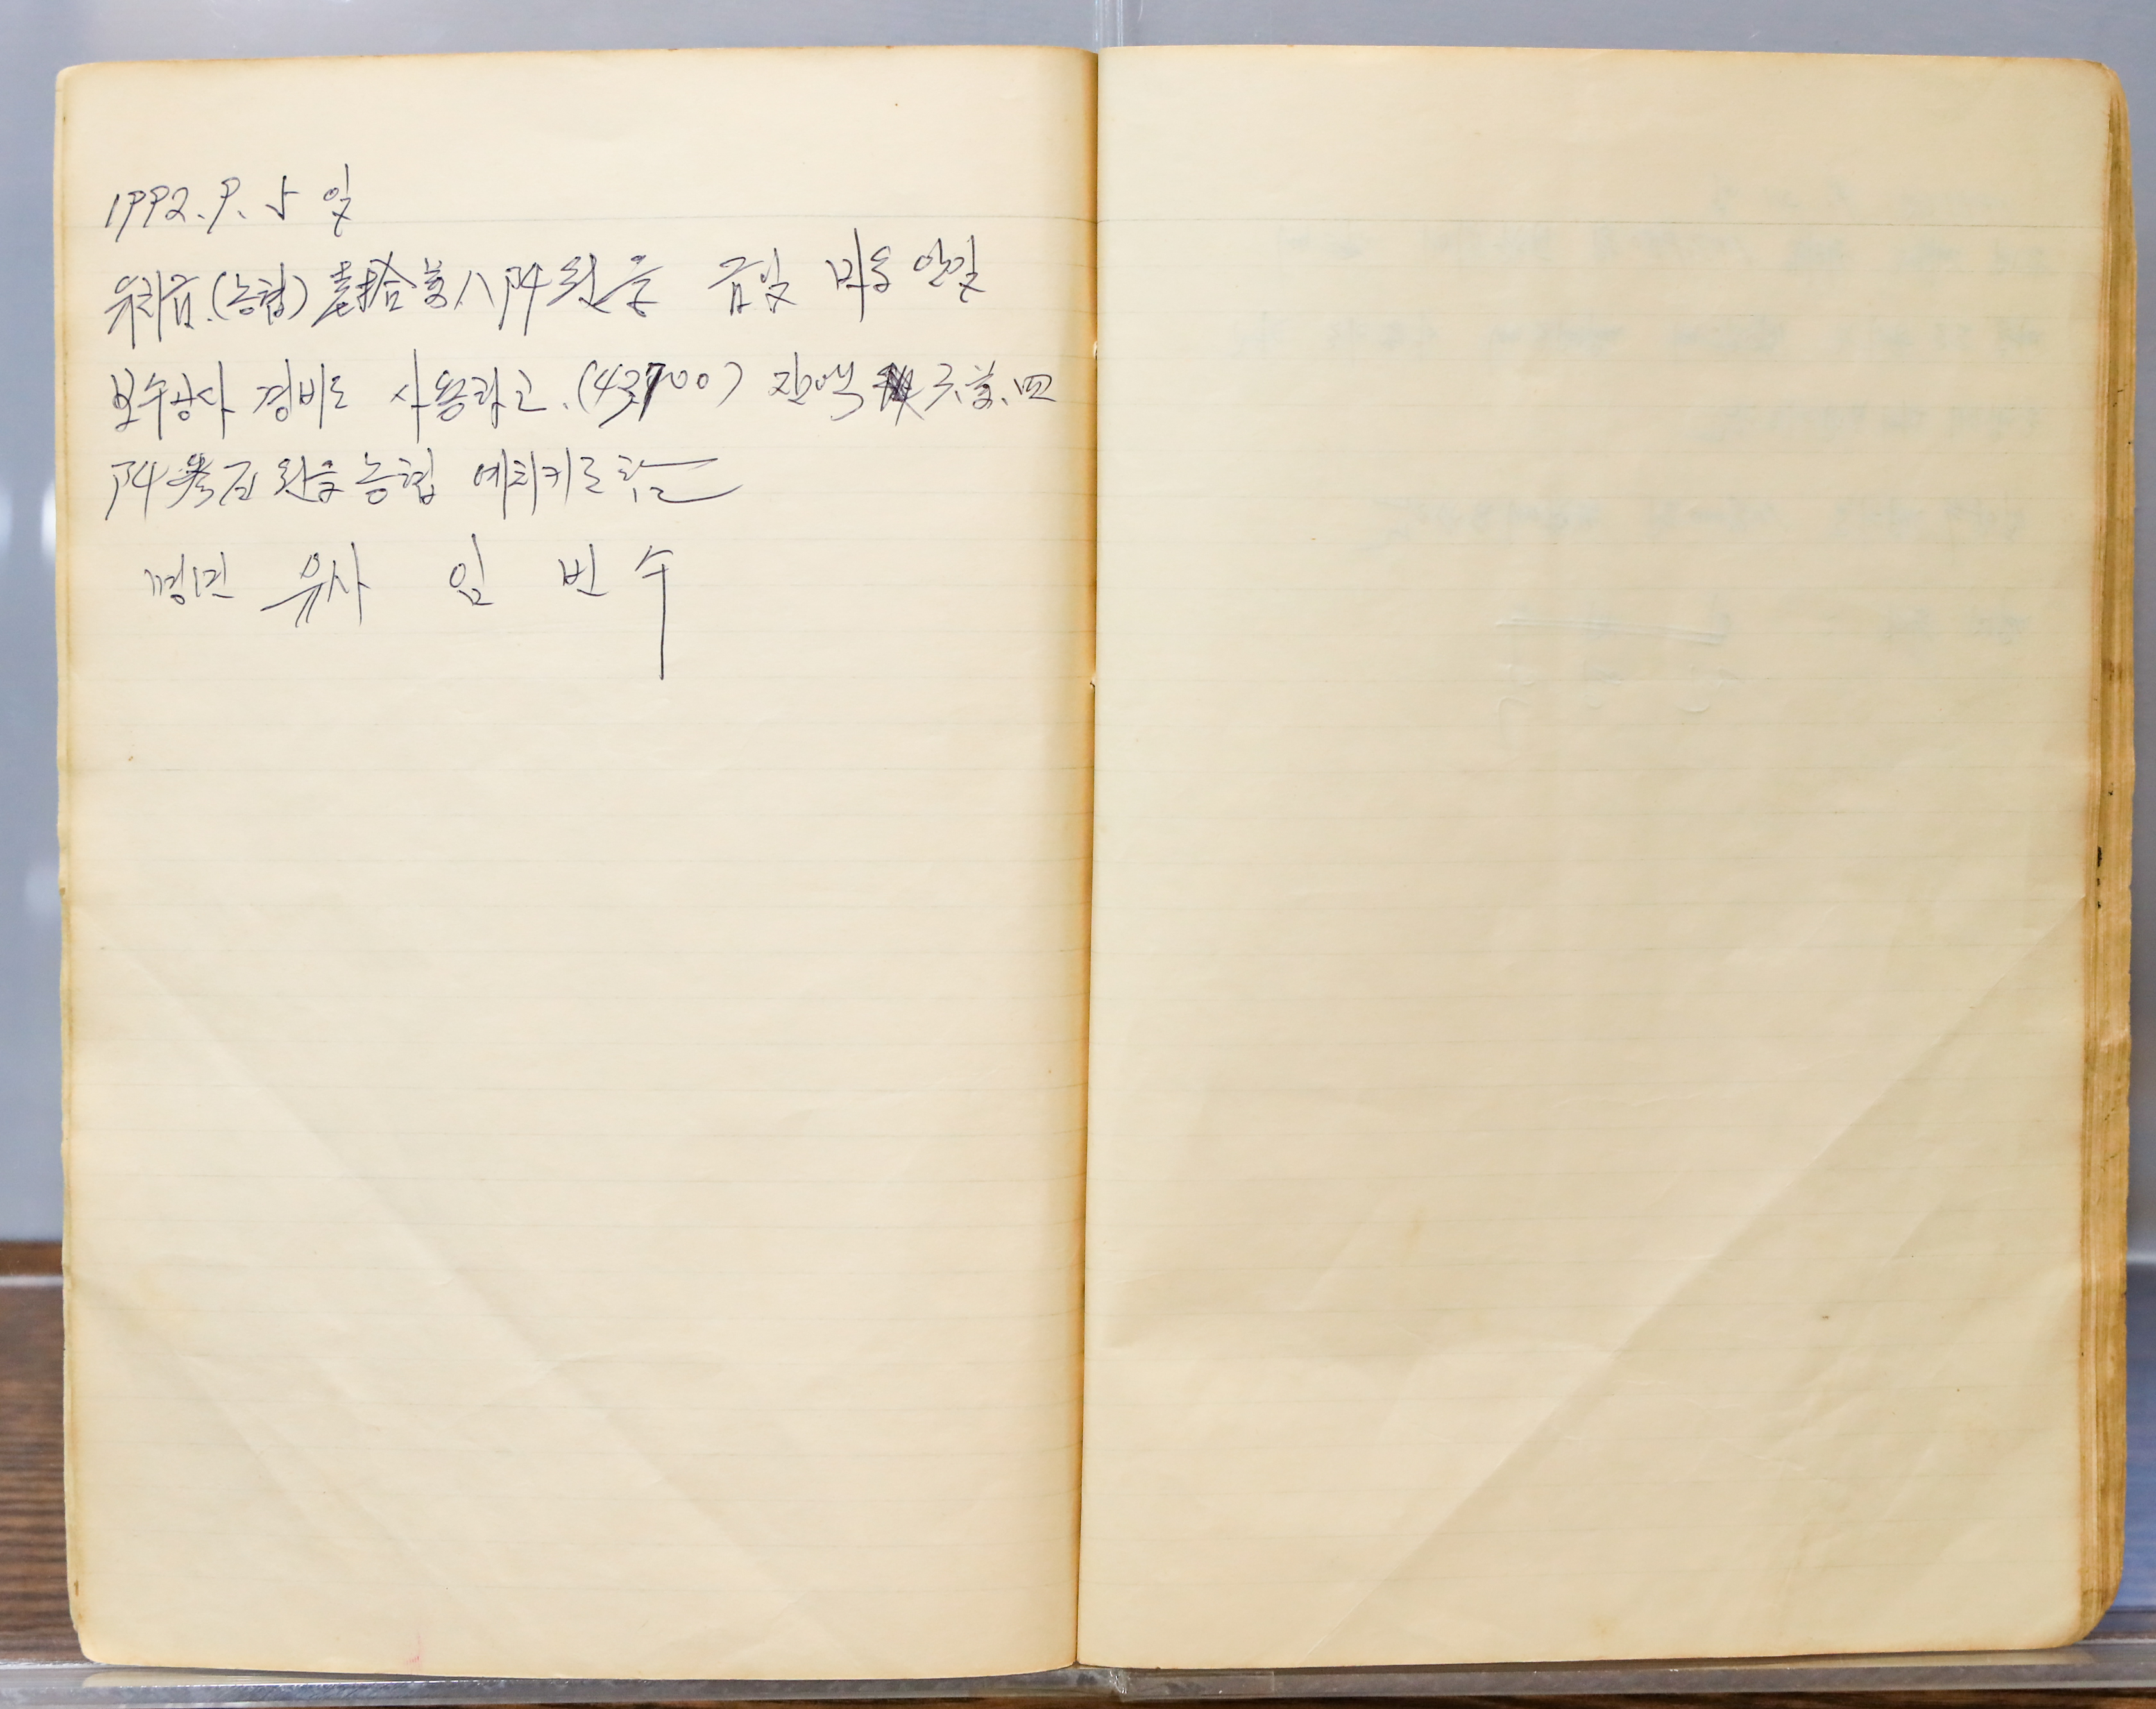 1992. 9. 5 일
유치금.(농협) 壹拾萬八阡원을 금일 미동 안길
보수공사 경비로 사용하고.(43700) 잔액 六.萬.四
阡參百 원을 농협 예치키로 함
명년 유사 임 번 수